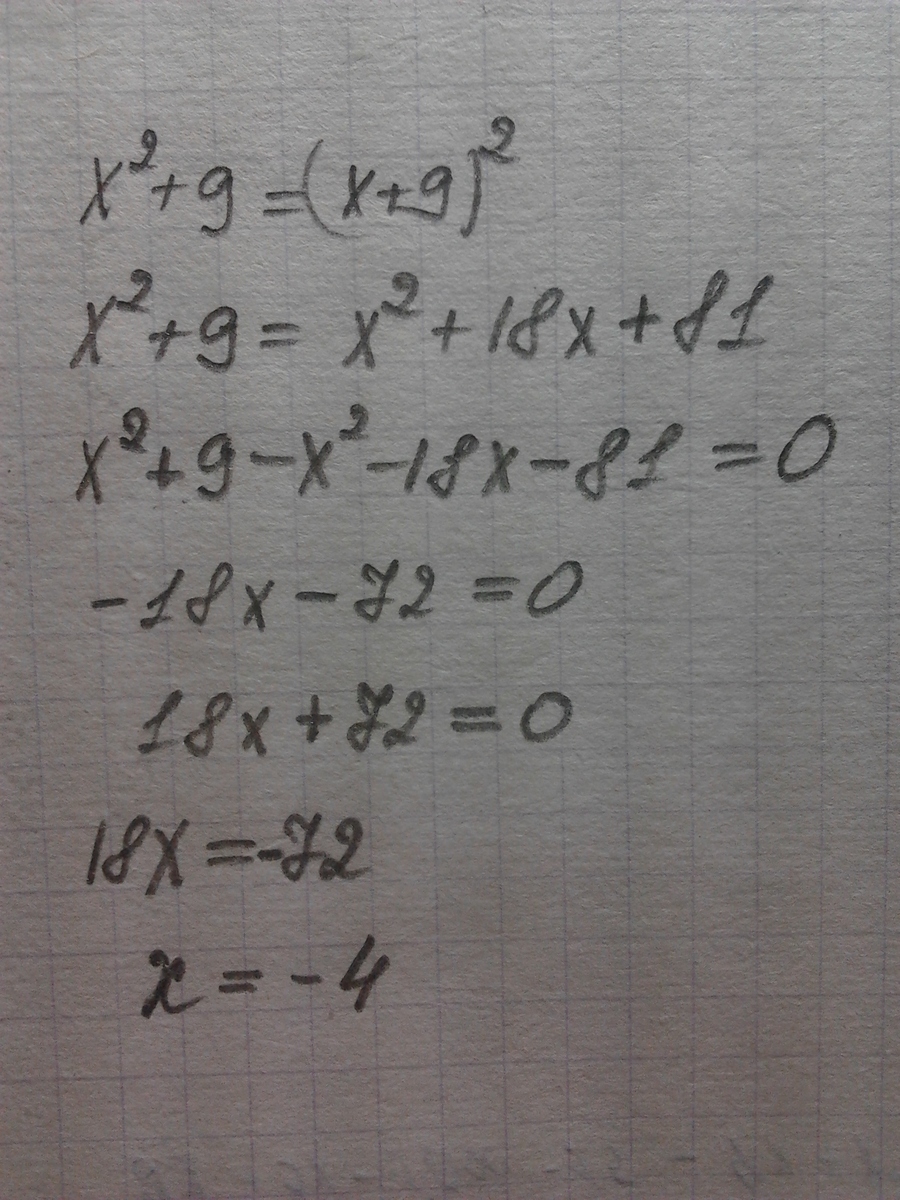 x²+9=(x+9)²
x²+9= x²+18x+81
x²+9-x²-18x-81=0
-18x-72=0
18x+72=0
18x=-72
x=-4